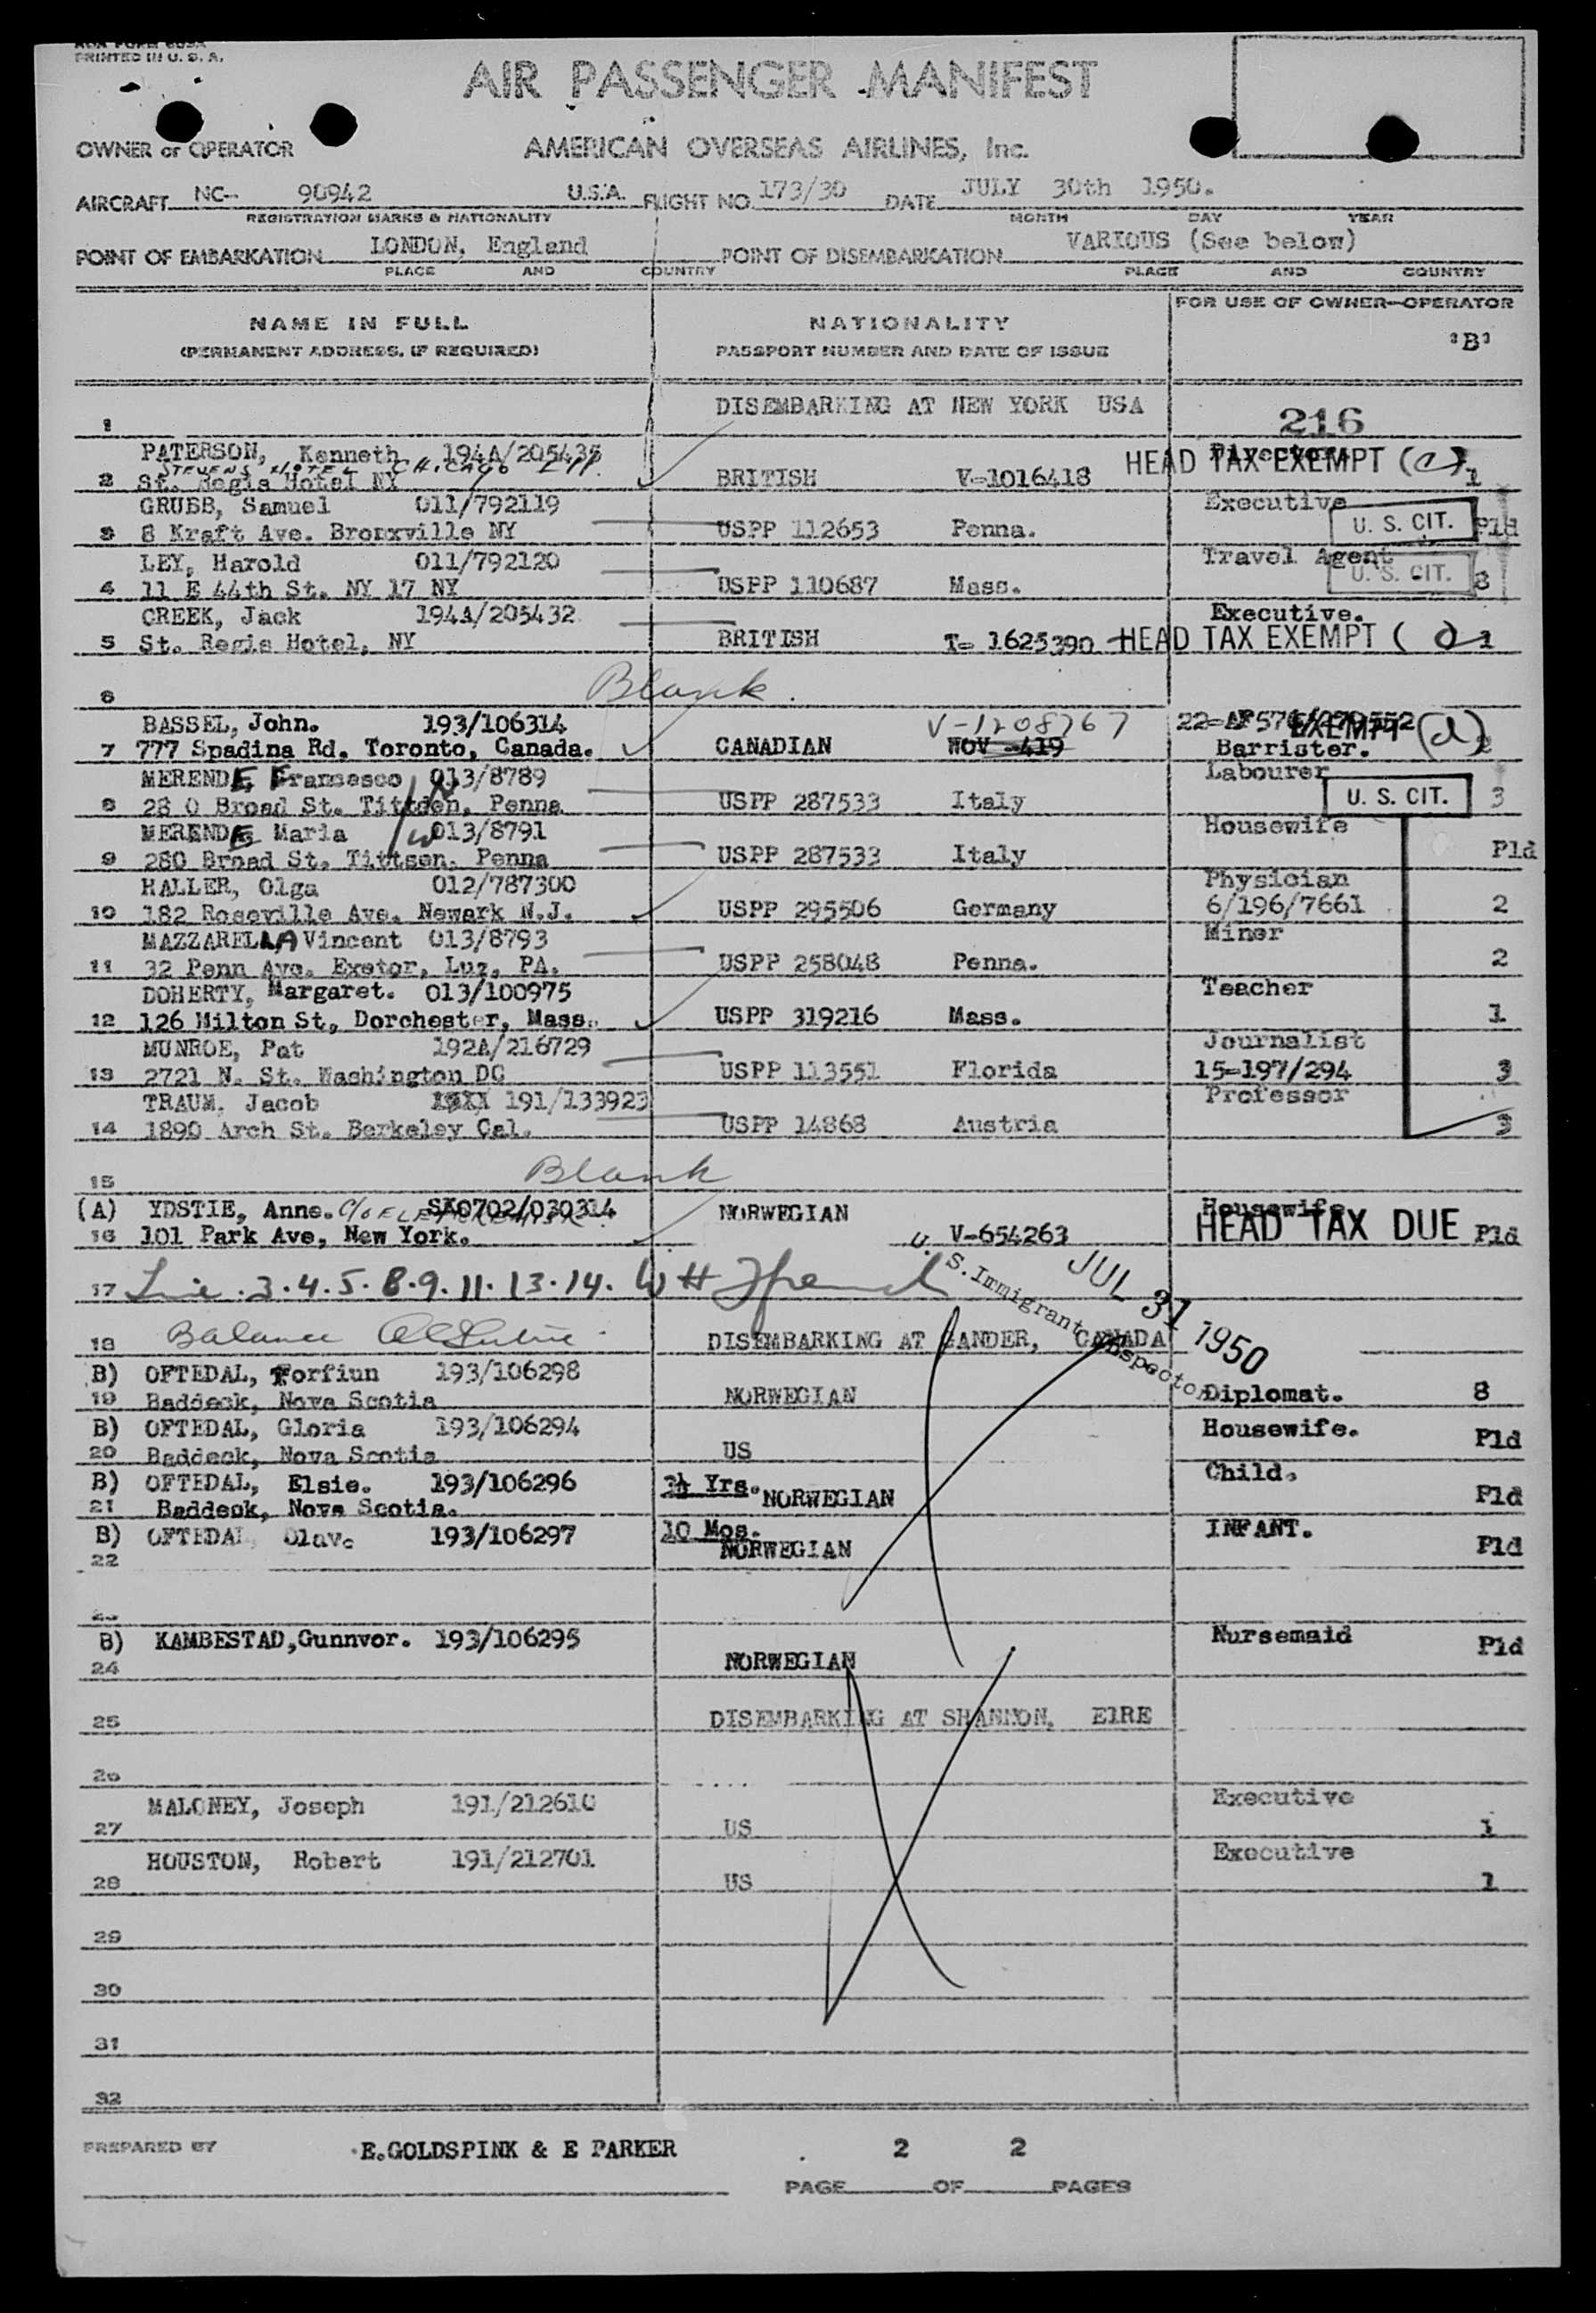 PRINTED IN U. S. A.
AIR PASSENGER MANIFEST
OWNER or OPERATOR AMERICAN OVERSEAS AIRLINES, Inc.
AIRCRAFT NC- 90942 U.S.A. FLIGHT NO. 173/30 DATE JULY 30th 1950.
REGISTRATION MARKS & NATIONALITY MONTH DAY YEAR
POINT OF EMBARKATION LONDON, England POINT OF DISEMBARKATION VARIOUS (See below)
PLACE AND COUNTRY PLACE AND COUNTRY
NAME IN FULL NATIONALITY FOR USE OF OWNER-OPERATOR
(PERMANENT ADDRESS, IF REQUIRED) PASSPORT NUMBER AND DATE OF ISSUE 'B'
1 DISEMBARKING AT NEW YORK USA 216
PATERSON, Kenneth 194A/205435 HEAD TAX EXEMPT (c)
STEVENS HOTEL CHICAGO Ill.
2 St. Regis Hotel NY BRITISH V-1016418 1
GRUBB, Samuel 011/792119 Executive
3 8 Kraft Ave. Bronxville NY USPP 112653 Penna. U. S. CIT. Pld
LEY, Harold 011/792120 Travel Agent
4 11 E 44th St. NY 17 NY USPP 110687 Mass. U. S. CIT. 3
CREEK, Jack 194A/205432 Executive.
5 St. Regis Hotel, NY BRITISH T- 1625390 HEAD TAX EXEMPT ( ) 1
6 Blank.
BASSEL, John. 193/106314 V-1208767 EXEMPT (d)
7 777 Spadina Rd. Toronto, Canada. CANADIAN NOV -419 Barrister. 2
MERENDE Francesco 013/8789 Labourer
8 28 0 Broad St. Tittden, Penna USPP 287533 Italy U. S. CIT. 3
MERENDE Maria 013/8791 Housewife
9 280 Broad St. Tittsen. Penna USPP 287533 Italy Pld
HALLER, Olga 012/787300 Physician
10 182 Roseville Ave. Newark N.J. USPP 295506 Germany 6/196/7661 2
MAZZARELLA Vincent 013/8793 Miner
11 32 Penn Ave. Exetor, Luz, PA. USPP 258048 Penna. 2
DOHERTY, Margaret. 013/100975 Teacher
12 126 Milton St, Dorchester, Mass. USPP 319216 Mass. 1
MUNROE, Pat 192A/216729 Journalist
13 2721 N. St. Washington DC USPP 113551 Florida 15-197/294 3
TRAUM, Jacob 191/133923 Professor
14 1890 Arch St. Berkeley Cal. USPP 14868 Austria 3
15 Blank
(A) YDSTIE, Anne. c/o SA0702/030314 NORWEGIAN Housewife
16 101 Park Ave, New York. V-654263 HEAD TAX DUE Pld
17 Line. 3.4.5.8.9.11.13.14.
U. S. Immigrant Inspector JUL 31 1950
18 Balance DISEMBARKING AT GANDER, CANADA
B) OFTEDAL, Torfiun 193/106298
19 Baddeck, Nova Scotia NORWEGIAN Diplomat. 8
B) OFTEDAL, Gloria 193/106294 Housewife.
20 Baddeck, Nova Scotia US Pld
B) OFTEDAL, Elsie. 193/106296 3½ Yrs. Child.
21 Baddeck, Nova Scotia. NORWEGIAN Pld
B) OFTEDAL, Olave 193/106297 10 Mos. INFANT.
22 NORWEGIAN Pld
23
B) KAMBESTAD,Gunnvor. 193/106295 Nursemaid Pld
24 NORWEGIAN
25 DISEMBARKING AT SHANNON, EIRE
26
MALONEY, Joseph 191/212610 Executive
27 US 1
HOUSTON, Robert 191/212701 Executive
28 US 1
29
30
31
32
PREPARED BY E.GOLDSPINK & E PARKER 2 2
PAGE OF PAGES